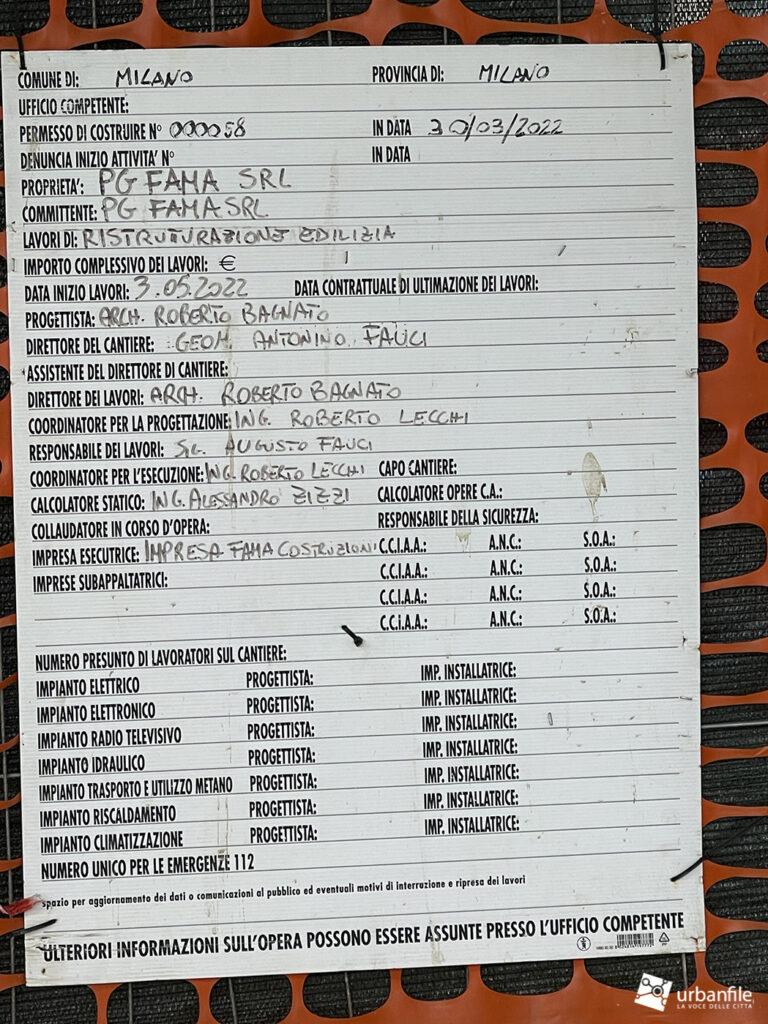 COMUNE DI: MILANO PROVINCIA DI: MILANO
UFFICIO COMPETENTE:
PERMESSO DI COSTRUIRE N° 000058 IN DATA 30/03/2022
DENUNCIA INIZIO ATTIVITA' N° IN DATA
PROPRIETA': PG FAMA SRL
COMMITTENTE: PG FAMA SRL
LAVORI DI: RISTRUTURAZIONE EDILIZIA
IMPORTO COMPLESSIVO DEI LAVORI: €
DATA INIZIO LAVORI: 3.05.2022 DATA CONTRATTUALE DI ULTIMAZIONE DEI LAVORI:
PROGETTISTA: ARCH. ROBERTO BAGNATO
DIRETTORE DEL CANTIERE: GEOM. ANTONINO FAUCI
ASSISTENTE DEL DIRETTORE DI CANTIERE:
DIRETTORE DEI LAVORI: ARCH. ROBERTO BAGNATO
COORDINATORE PER LA PROGETTAZIONE: ING. ROBERTO LECCHI
RESPONSABILE DEI LAVORI: SIG. AUGUSTO FAUCI
COORDINATORE PER L'ESECUZIONE: ING. ROBERTO LECCHI CAPO CANTIERE:
CALCOLATORE STATICO: ING. ALESSANDRO ZIZZI CALCOLATORE OPERE C.A.:
COLLAUDATORE IN CORSO D'OPERA: RESPONSABILE DELLA SICUREZZA:
IMPRESA ESECUTRICE: IMPRESA FAMA COSTRUZIONI C.C.I.A.A.: A.N.C.: S.O.A.:
IMPRESE SUBAPPALTATRICI: C.C.I.A.A.: A.N.C.: S.O.A.:
C.C.I.A.A.: A.N.C.: S.O.A.:
C.C.I.A.A.: A.N.C.: S.O.A.:
NUMERO PRESUNTO DI LAVORATORI SUL CANTIERE:
IMPIANTO ELETTRICO PROGETTISTA: IMP. INSTALLATRICE:
IMPIANTO ELETTRONICO PROGETTISTA: IMP. INSTALLATRICE:
IMPIANTO RADIO TELEVISIVO PROGETTISTA: IMP. INSTALLATRICE:
IMPIANTO IDRAULICO PROGETTISTA: IMP. INSTALLATRICE:
IMPIANTO TRASPORTO E UTILIZZO METANO PROGETTISTA: IMP. INSTALLATRICE:
IMPIANTO RISCALDAMENTO PROGETTISTA: IMP. INSTALLATRICE:
IMPIANTO CLIMATIZZAZIONE PROGETTISTA: IMP. INSTALLATRICE:
NUMERO UNICO PER LE EMERGENZE 112
spazio per aggiornamento dei dati o comunicazioni al pubblico ed eventuali motivi di interruzione e ripresa dei lavori
ULTERIORI INFORMAZIONI SULL'OPERA POSSONO ESSERE ASSUNTE PRESSO L'UFFICIO COMPETENTE
urbanfile
LA VOCE DELLE CITTÀ